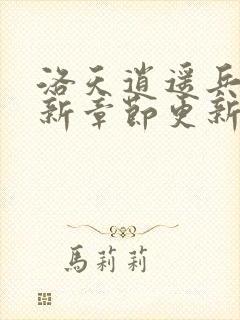 洛天逍遥兵
新章節更新
馬莉莉